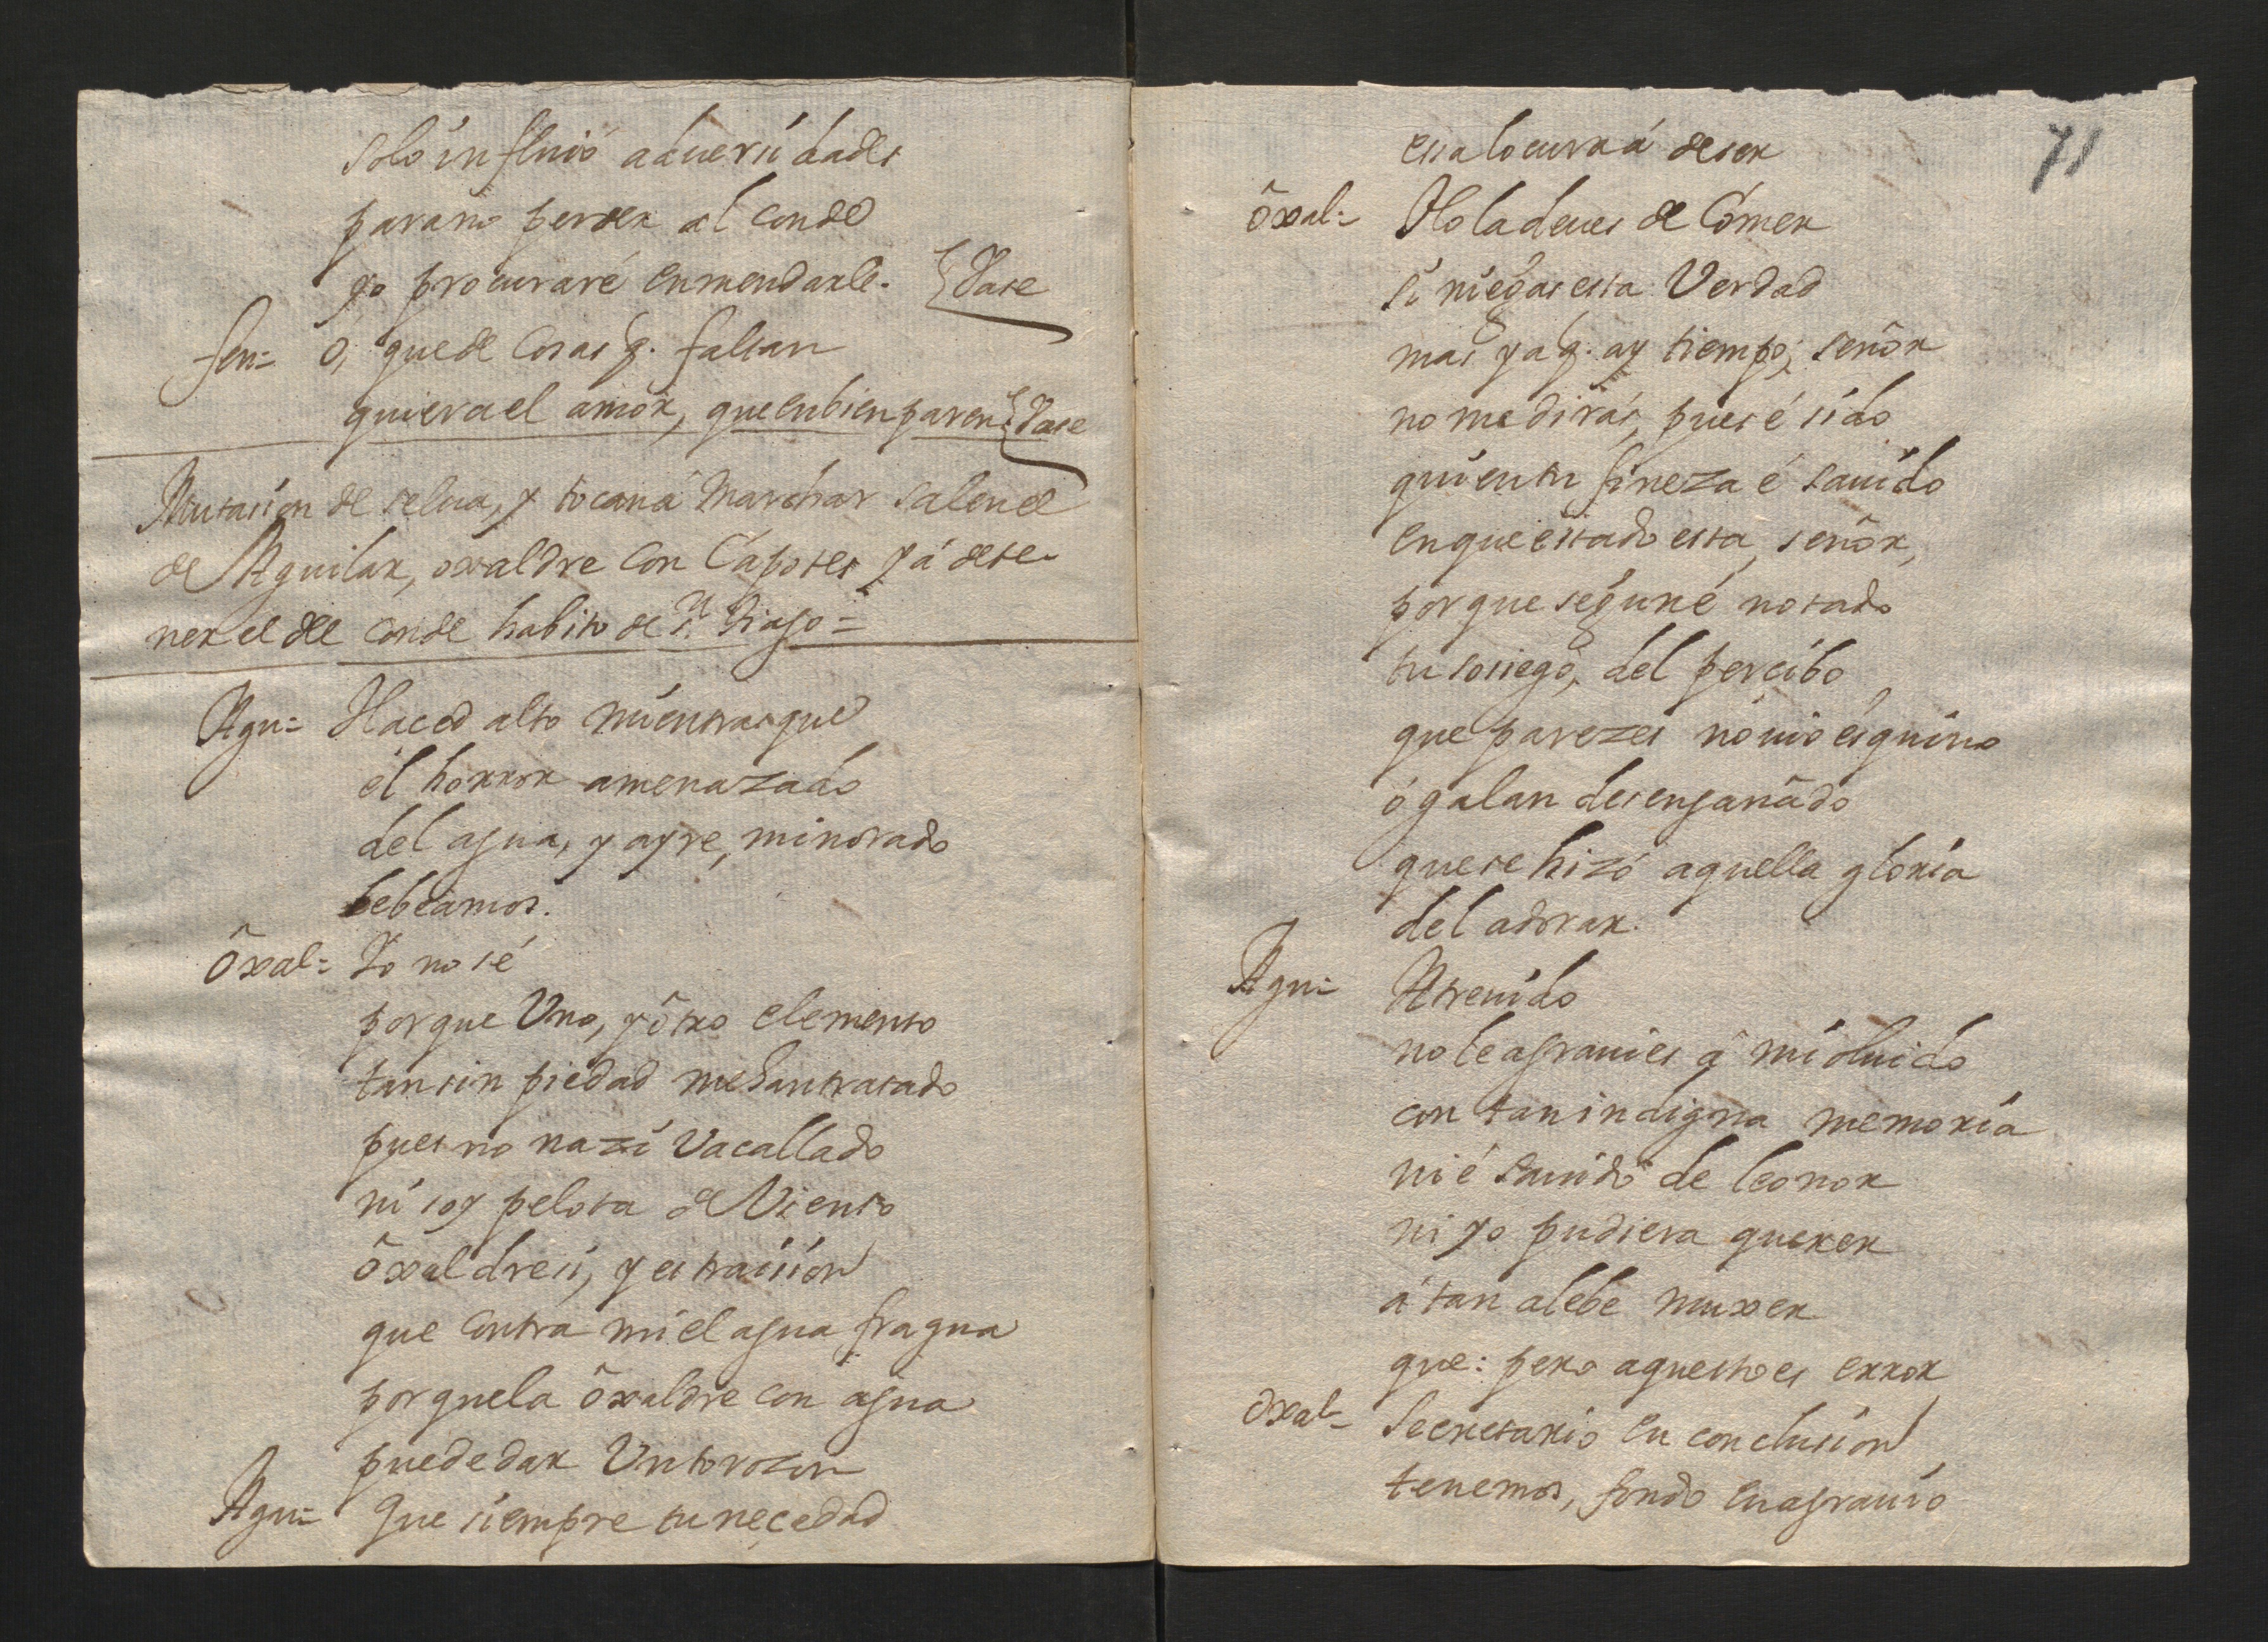 solo influió aduersidades
parano perder al conde
yo procuraré enmendarle. Vase
fen= O, que de Cosas q. faltan
quiera el amór, que en bien paren Vase
Mutasion de selua, y tocaná Marchar salen el
de Aguilar, oxaldre Con Capotes y á dete-
ner el del conde habito de S.n tiago=
Agu= Haced alto mientras que
él horror amenazado
del agua, y ayre, minorado
bebeamos.
ôxal= Yo no sé
porque Vno, y ôtro elemento
tan sin piedad mehan tratado
pues no nazí Vacallado
ni soy pelota de Viento
ôxaldre sí, y es traision
que Contra mi el agua fragua
porque la ôxaldre con agua
puede dar Vn torozon
Agu= Que siempre tu neçedad
71
essa locurra á deser
ôxal= Hola deues de Comer
si niegas esta Verdad
mas ya q. ay tiempo, señor
no me dirás, pues é sido
quien tu fineza é sauido
en que estado esta, señor,
porque según é notado
tu sosiego, del percibo
que parezes nouio ésquiuo
ó galan desengañado
que se hizó aquella gloria
del adorar.
Agu= Atreuido
no le agrauies á mi oluido
con tan indigna memoria
ni é sauido de leonor
ni yo pudiera querer
á tan alebe muxer
que: pero aquesto es error
oxal= Secretario en conclusion
tenemos, fondo en agrauio